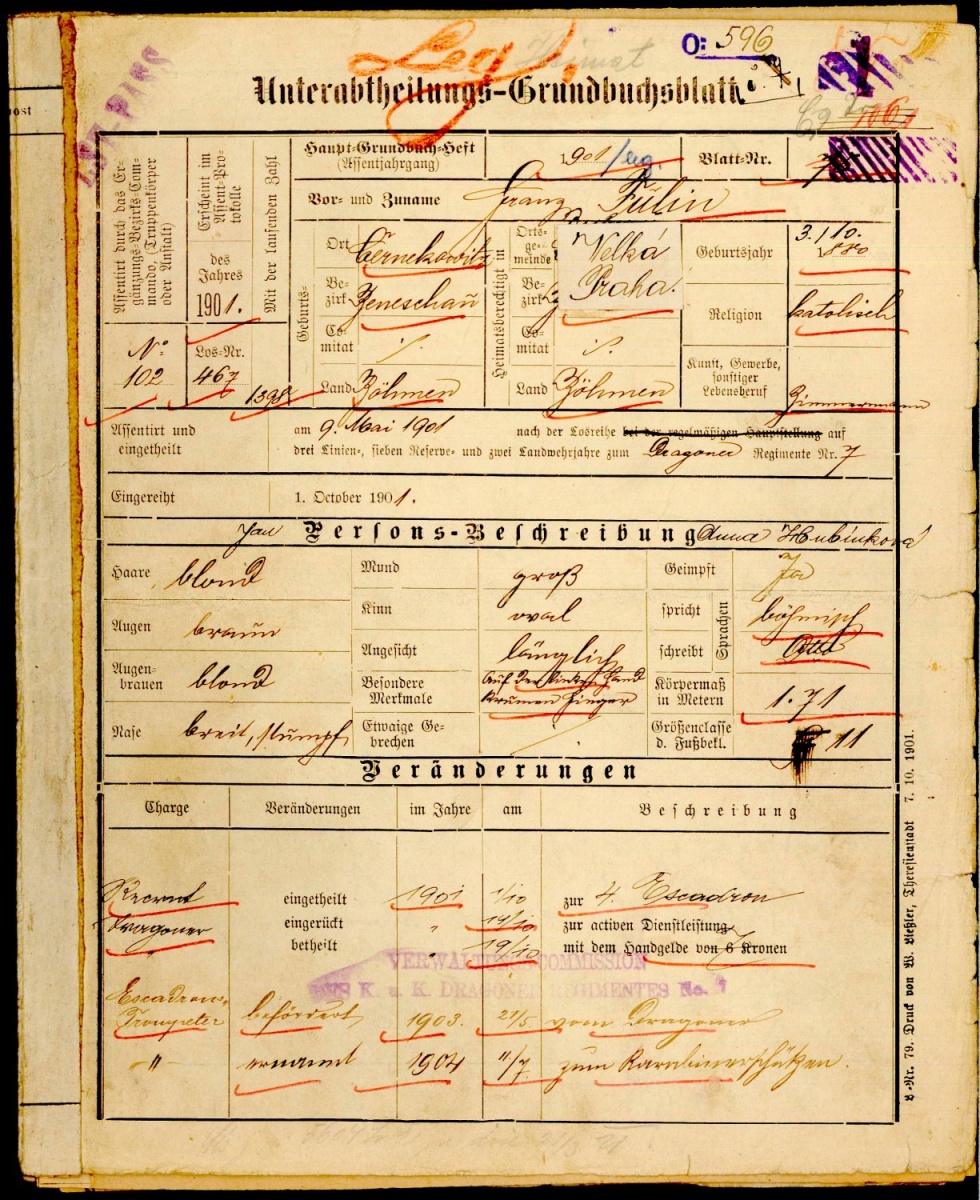 Leg.
Heimat
O: 596
Unterabtheilungs-Grundbuchsblatt.
1061
Assentirt durch das Er-
gänzungs-Bezirks-Com-
mando, (Truppenkörper
oder Anstalt)
No
102
Erscheint im
Assent-Pro-
tokolle
des
Jahres
1901.
Los-Nr.
467
Mit der laufenden Zahl
1398
Haupt-Grundbuch-Heft
(Assentjahrgang)
1901/leg.
Blatt-Nr.
Vor- und Zuname Franz Fulin
Geburts-
Ort Černekowitz
Be-
zirk Beneschau
Co-
mitat ·/.
Land Böhmen
Heimatsberechtigt in
Orts-
ge-
meinde Velká
Be-
zirk Praha.
Co-
mitat ·/.
Land Böhmen
Geburtsjahr 3./10.
1880
Religion katolisch
Kunst, Gewerbe,
sonstiger
Lebensberuf Zimmermann
Assentirt und
eingetheilt
am 9. Mai 1901 nach der Losreihe bei der regelmäßigen Hauptstellung auf
drei Linien-, sieben Reserve- und zwei Landwehrjahre zum Dragoner Regimente Nr. 7
Eingereiht 1. October 1901.
Jan Persons-Beschreibung Anna Hubínková
Haare blond
Augen braun
Augen-
brauen blond
Nase breit, stumpf
Mund groß
Kinn oval
Angesicht länglich
Besondere
Merkmale auf der linken Hand
krumen Finger
Etwaige Ge-
brechen ·/.
Geimpft Ja
Sprachen
spricht böhmisch
schreibt
Körpermaß
in Metern 1·71
Größenclasse
d. Fußbekl. 11
Veränderungen
Charge Veränderungen im Jahre am Beschreibung
Recrut eingetheilt 1901 1/10 zur 4. Escadron
Dragoner eingerückt " 14/10 zur activen Dienstleistung
" betheilt " 19/10 mit dem Handgelde von 6 Kronen
VERWALTUNGS-COMMISSION
DES K. u. K. DRAGONER REGIMENTES No. 7
Escadrons-
Trompeter befördert 1903. 21/5 vom Dragoner
-"- ernannt 1904 11/7 zum Karabinerschützen.
L-Nr. 79. Druck von W. Ließler, Theresienstadt 7. 10. 1901.